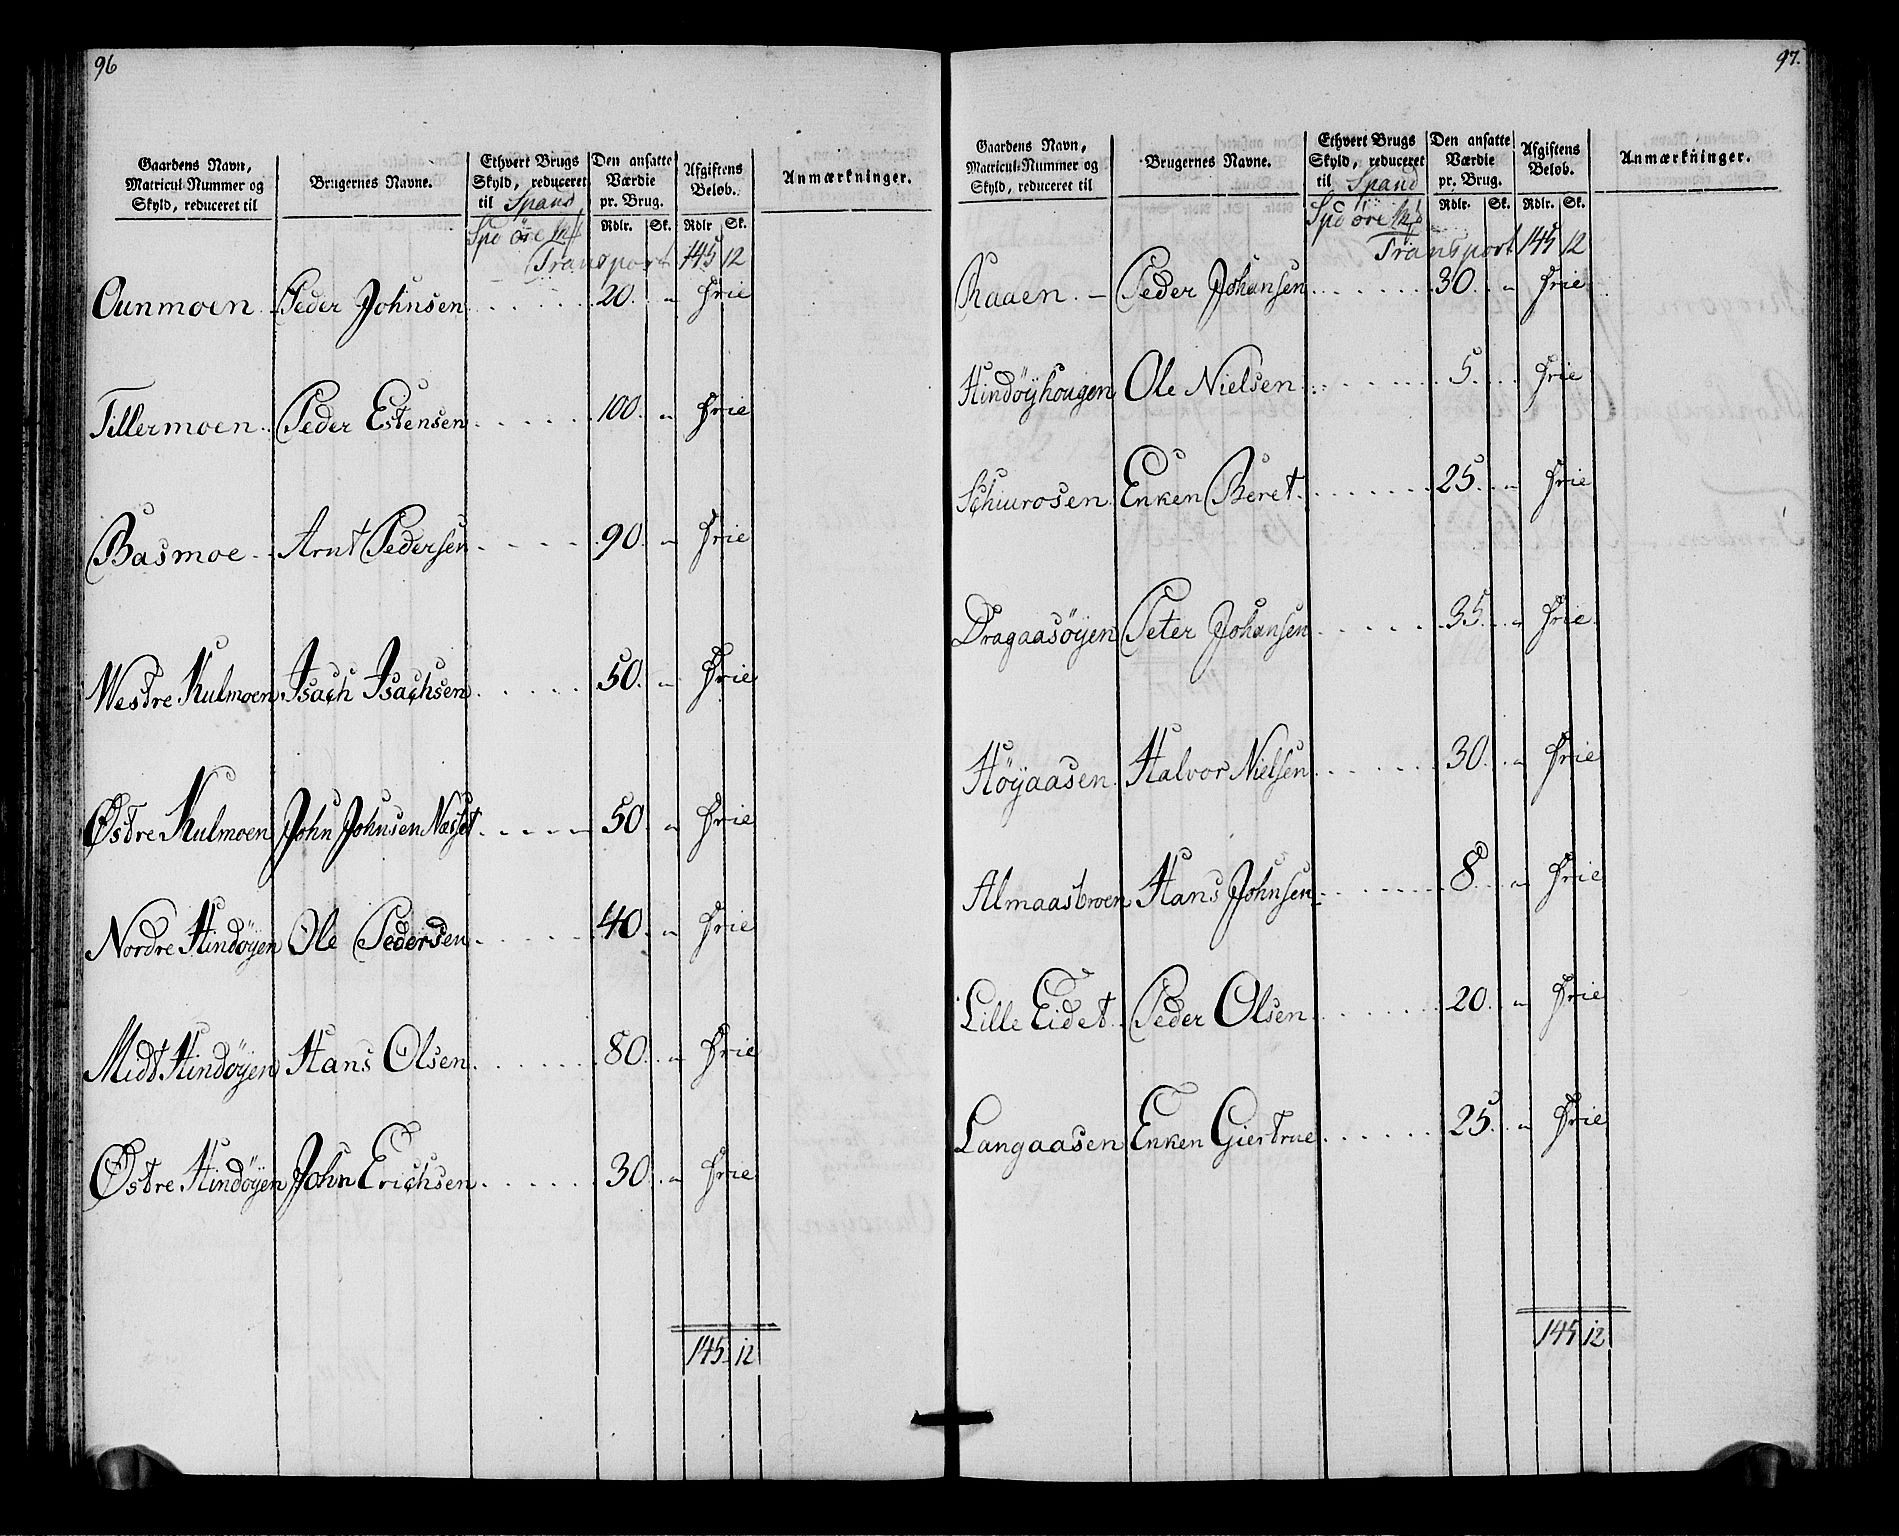 96
Gaardens Navn, Matricul-Nummer og Skyld, reduceret til
Brugernes Navne.
Ethvert Brugs Skyld, reduceret til Spand
Den ansatte Værdie pr. Brug.
Afgiftens Beløb.
Anmærkninger.
Spd öre
Rdlr. Sk. Rdlr Sk.
Transport 145 12
Ounmoen Peder Johnsen 20 " frie
Tillermoen Peder Estensen 100 " frie
Basmoe Arnt Pedersen 90 " frie
Westre Kulmoen Isach Isachsen 50 " frie
Østre Kulmoen John Johnsen Næsset 50 " frie
Nordre Hindöyen Ole Pedersen 40 " frie
Midt Hindöyen Hans Olsen 80 " frie
Østre Hindöyen John Erichsen 30 " frie
145 12
97.
Gaardens Navn, Matricul-Nummer og Skyld, reduceret til
Brugernes Navne.
Ethvert Brugs Skyld, reduceret til Spand
Den ansatte Værdie pr. Brug.
Afgiftens Beløb.
Anmærkninger.
Spd öre
Rdlr. Sk. Rdlr. Sk.
Transport 145 12
Raaen Peder Johansen 30 " frie
Hindöyhougen Ole Nielsen 5 frie
Schiurosen Enken Beret 25 " frie
Dragaasöyen Peter Johansen 35 " frie
Höyaasen Halvor Nielsen 30 " frie
Almaasbroen Hans Johnsen 8 " frie
Lille Eidet Peder Olsen 20 " frie
Langaasen Enken Giertrue 25 " frie
145 12